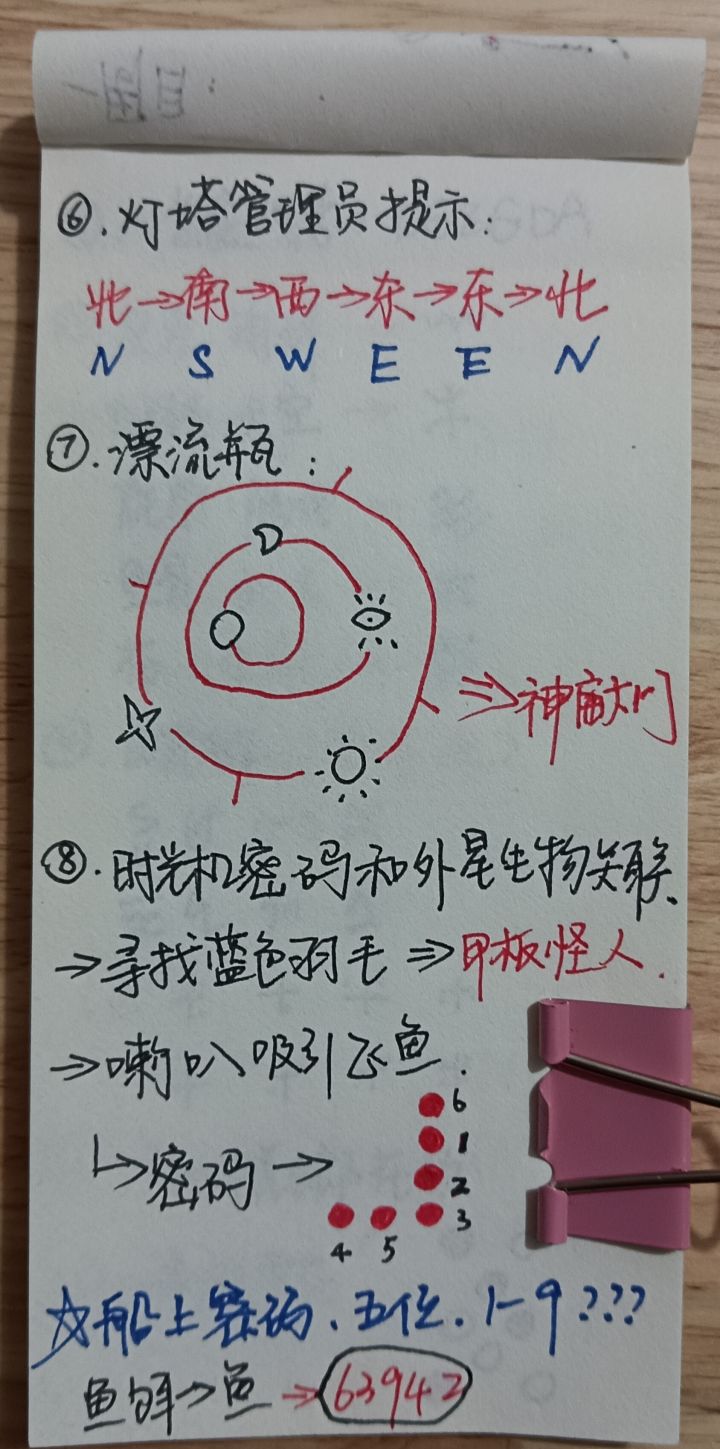 ⑥.灯塔管理员提示:
北→南→西→东→东→北
N S W E E N
⑦.漂流瓶:
⇒神庙大门
⑧.时光机密码和外星生物关联.
→寻找蓝色羽毛⇒甲板怪人.
→喇叭吸引飞鱼.
6
1
↳密码→
2
3
4 5
☆船上密码.五位.1-9???
鱼饵→鱼→63942